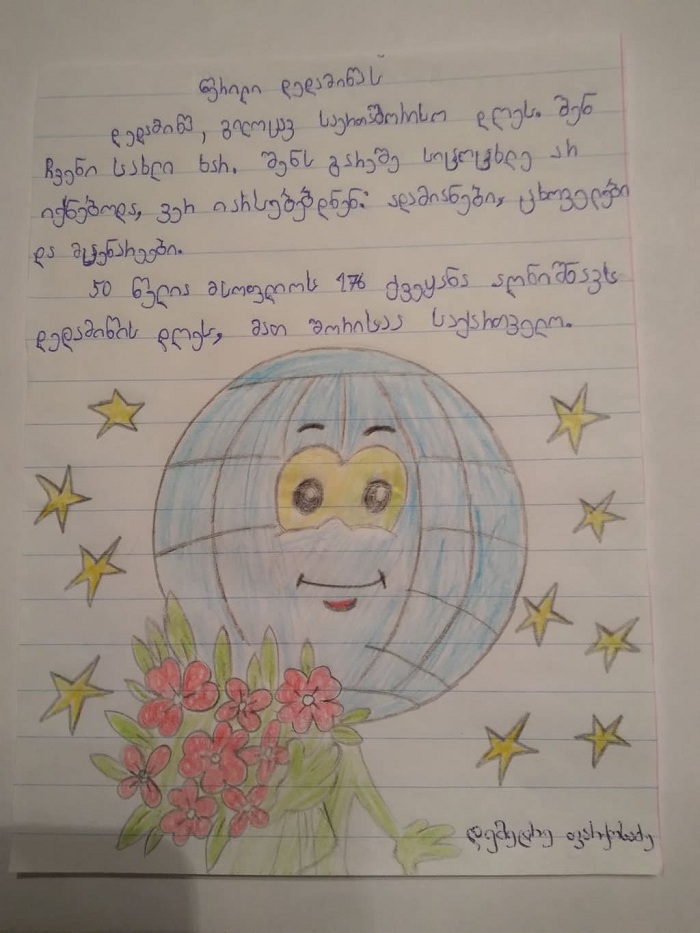 წერილი დედამიწას
დედამიწა, გილოცავ საერთაშორისო დღეს. შენ
ჩვენი სახლი ხარ. შენს გარეშე სიცოცხლე არ
იქნებოდა, ვერ იარსებებდნენ: ადამიანები, ცხოველები
და მცენარეები.
50 წელია მსოფლიოს 176 ქვეყანა აღნიშნავს
დედამიწის დღეს, მათ შორისაა საქართველო.
დემეტრე